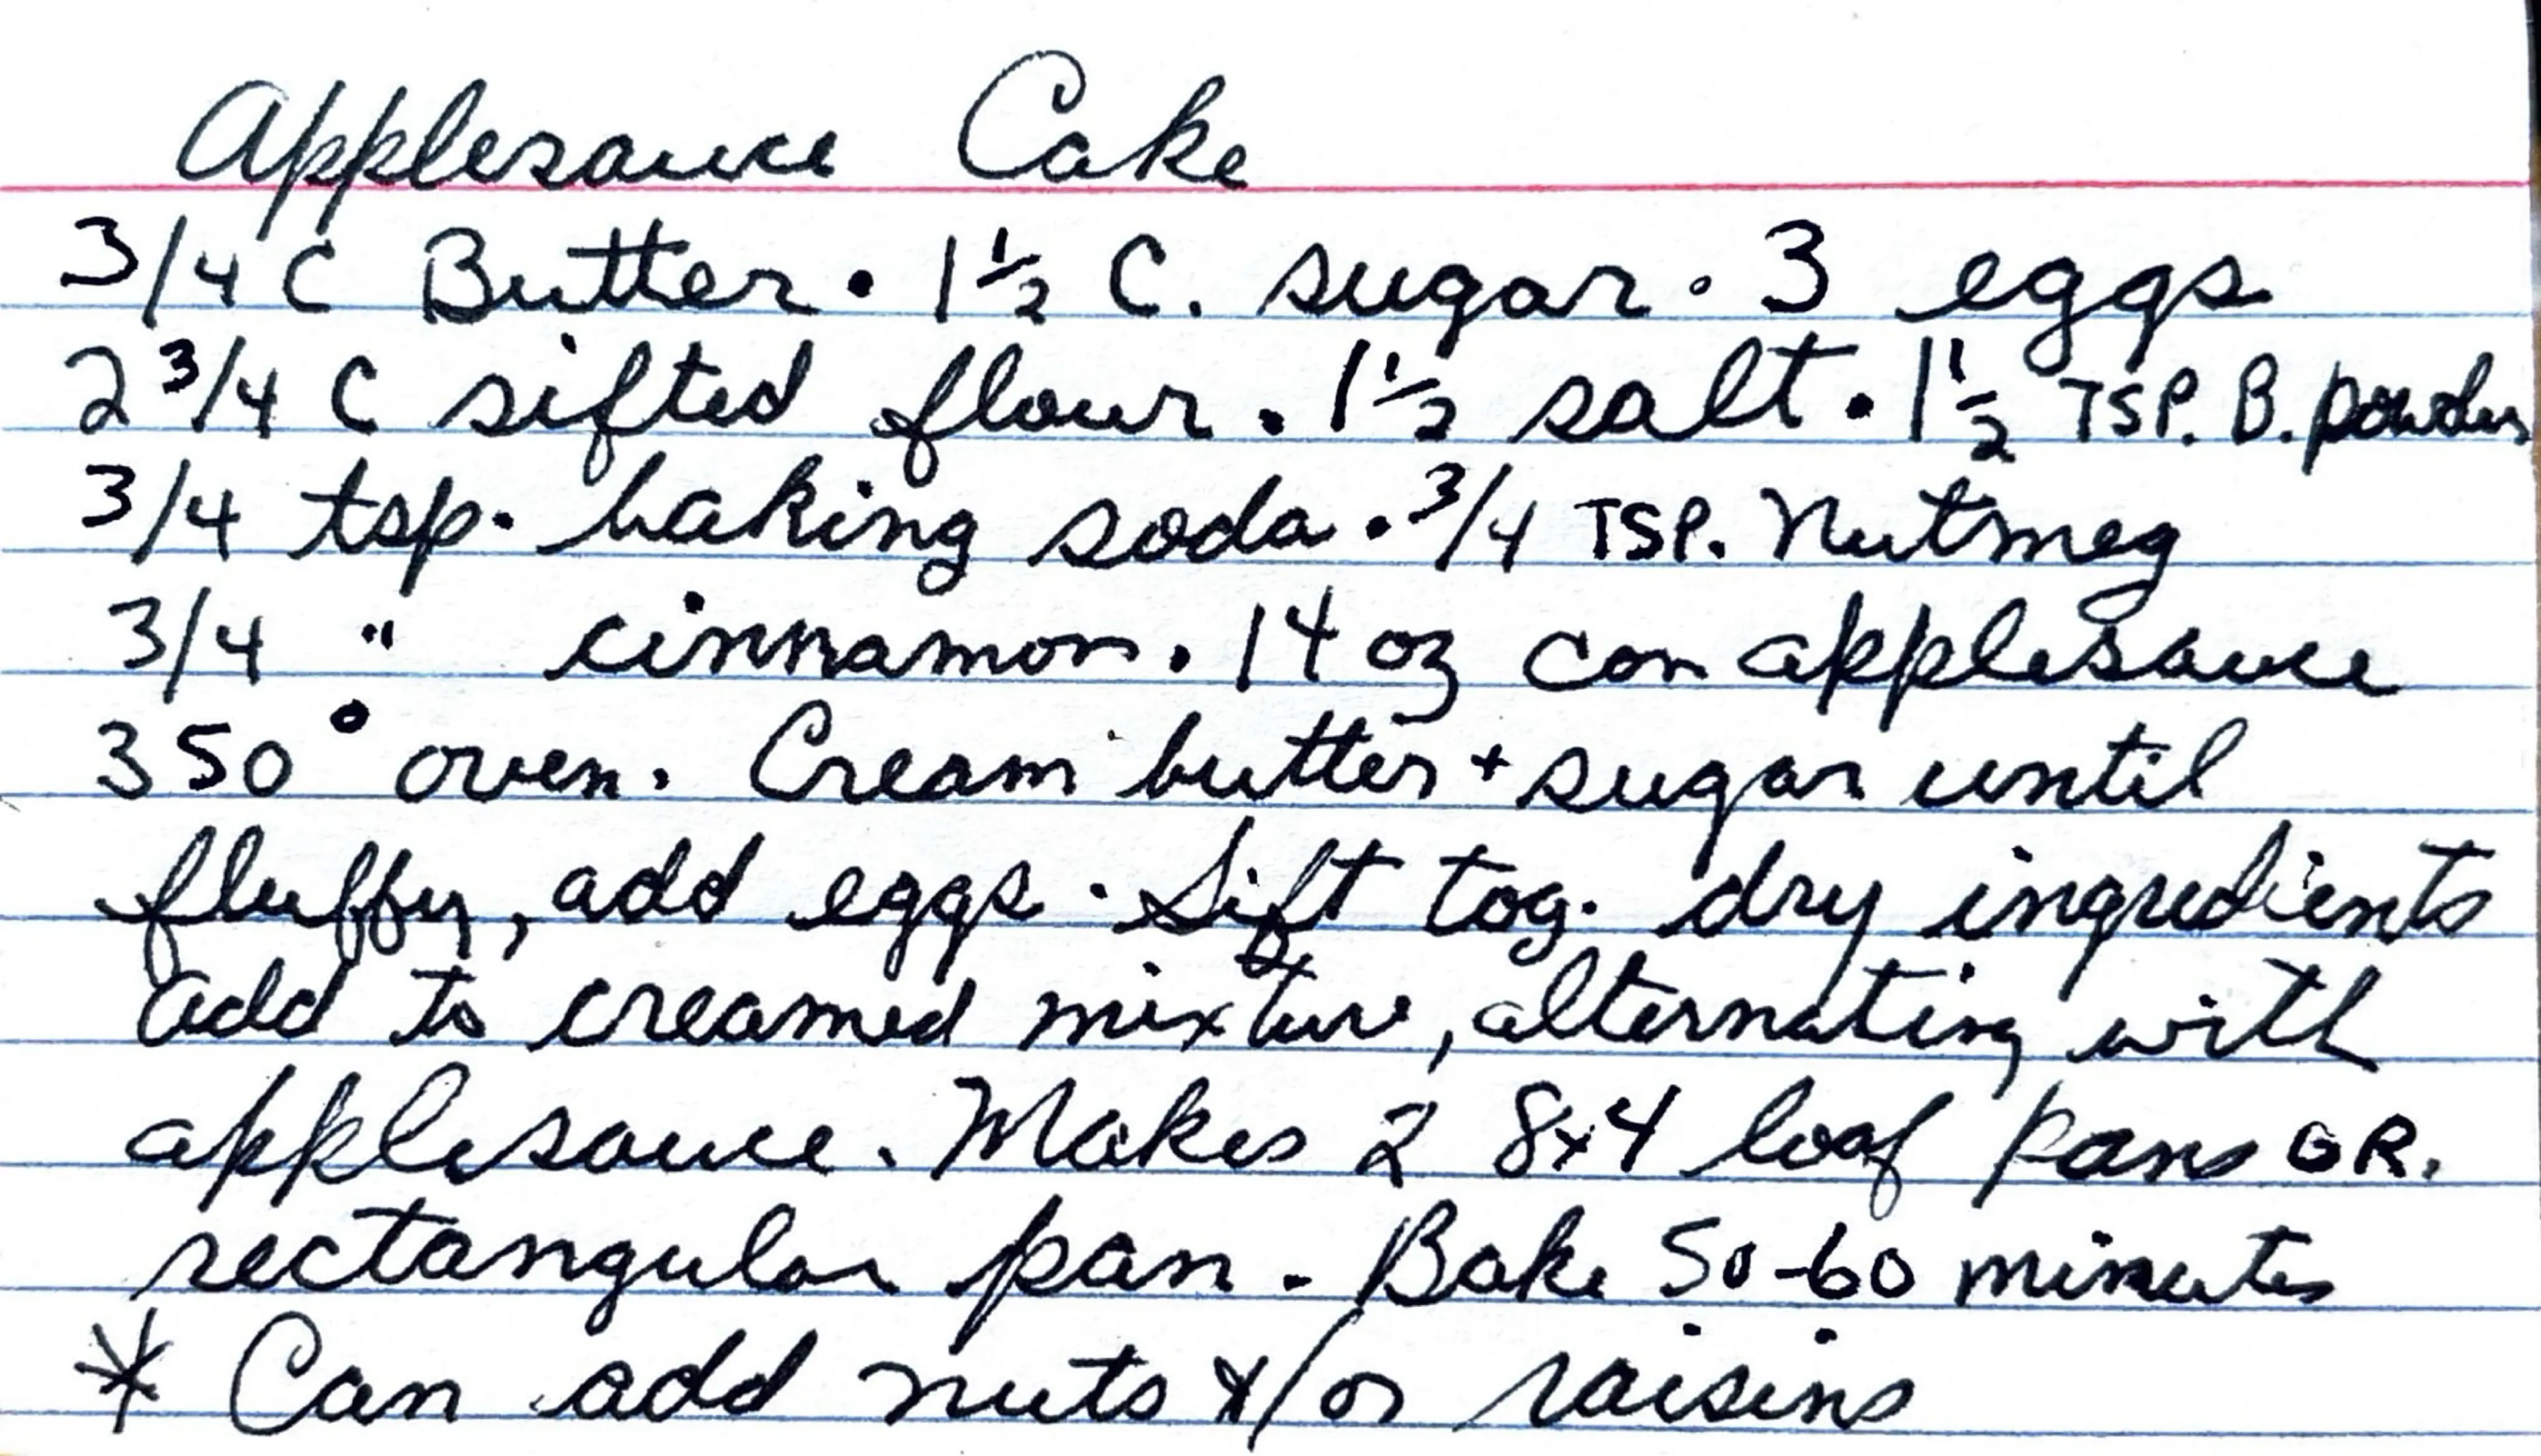 Applesauce Cake
3/4 C Butter • 1 1/2 C. sugar • 3 eggs
2 3/4 C sifted flour • 1 1/2 salt • 1 1/2 TSP. B. powder
3/4 tsp. baking soda • 3/4 TSP. Nutmeg
3/4 " cinnamon • 14 oz can applesauce
350° oven. Cream butter + sugar until
fluffy, add eggs. Sift tog. dry ingredients
add to creamed mixture, alternating with
applesauce. Makes 2 8x4 loaf pans OR.
rectangular pan. Bake 50-60 minutes
* Can add nuts +/or raisins